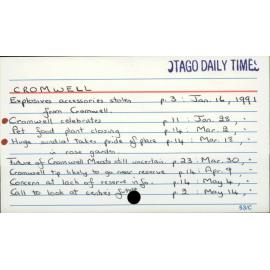 OTAGO DAILY TIMES
CROMWELL
Explosives accessories stolen p.3 : Jan. 16, 1991
from Cromwell
Cromwell celebrates p.11 : Jan. 28, "
Pet food plant closing p.14 : Mar. 2, "
Huge sundial takes pride of place p.14 : Mar. 13, "
in rose garden
Future of Cromwell Meats still uncertain p.23 : Mar. 30, "
Cromwell tip likely to go near reserve p.14 : Apr. 9, "
Concern at lack of reserve info. p.14 : May 4, "
Call to look at centre's p.2 : May 14, "